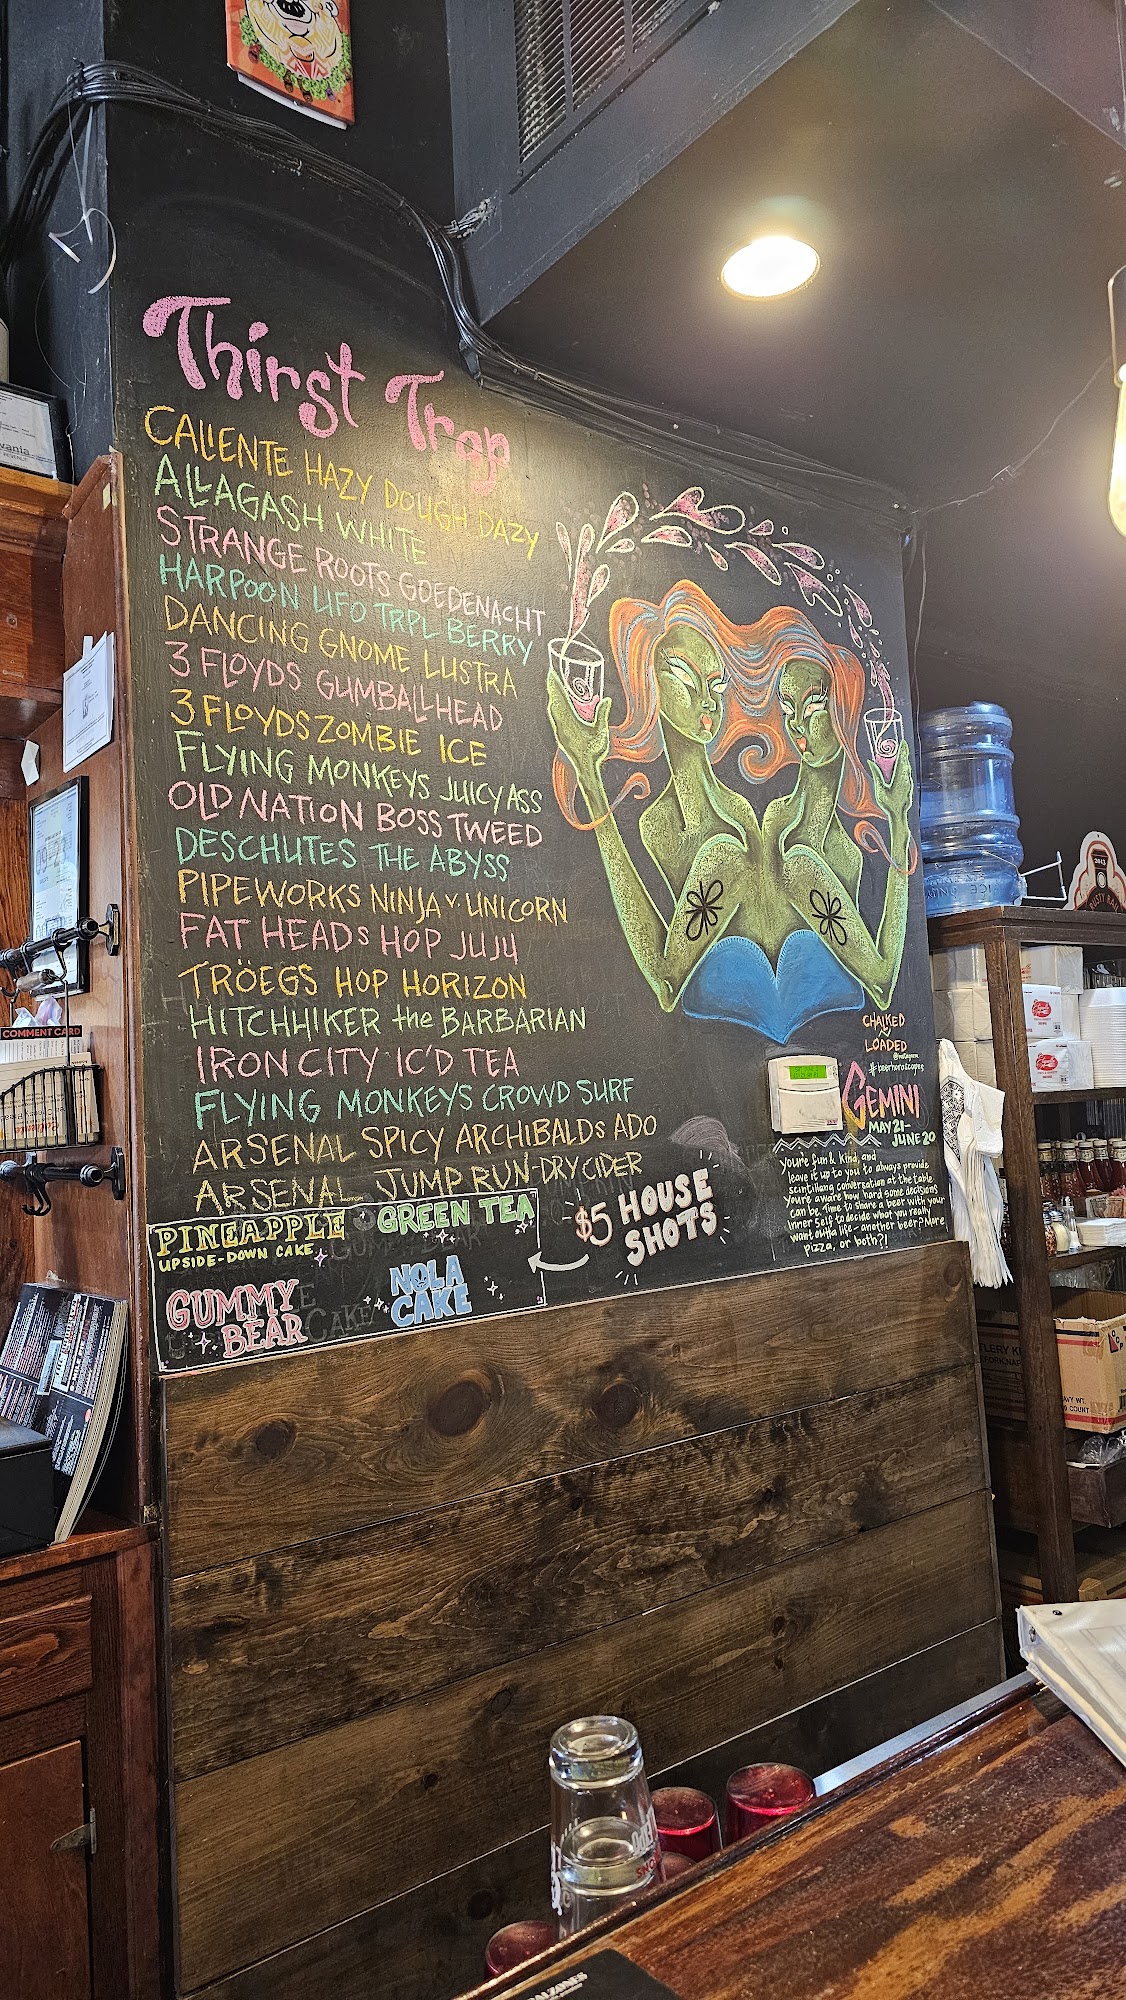 Thirst Trap
CALIENTE HAZY DOUGH DAZY
ALLAGASH WHITE
STRANGE ROOTS GOEDENACHT
HARPOON UFO TRPL BERRY
DANCING GNOME LUSTRA
3 FLOYDS GUMBALLHEAD
3 FLOYDS ZOMBIE ICE
FLYING MONKEYS JUICY ASS
OLD NATION BOSS TWEED
DESCHUTES THE ABYSS
PIPEWORKS NINJA v. UNICORN
FAT HEADS HOP JUJU
TRÖEGS HOP HORIZON
HITCHHIKER the BARBARIAN
IRON CITY IC'D TEA
FLYING MONKEYS CROWD SURF
ARSENAL SPICY ARCHIBALDS ADO
ARSENAL JUMP RUN-DRY CIDER
PINEAPPLE
UPSIDE-DOWN CAKE
GREEN TEA
GUMMY
BEAR
NOLA
CAKE
$5 HOUSE
SHOTS
CHALKED
LOADED
@instagram
#beerhoroscopes
GEMINI
MAY 21-
JUNE 20
You're fun & kind, and
leave it up to you to always provide
scintillang conversation at the table
You're aware how hard some decisions
can be. Time to share a beer with your
inner self to decide what you really
want outta life - another beer? More
pizza, or both?!
COMMENT CARD
vania
ICE